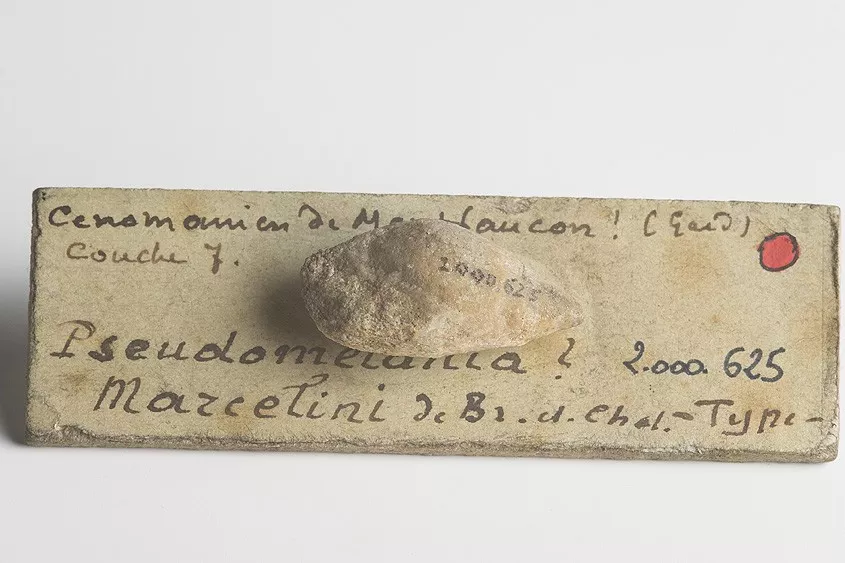 Cenomanien de Montfaucon! (Gard)
Couche 7.
2.000 625
Pseudomelania ? 2.000.625
Marcelini de Br. d. Chal. - Type -